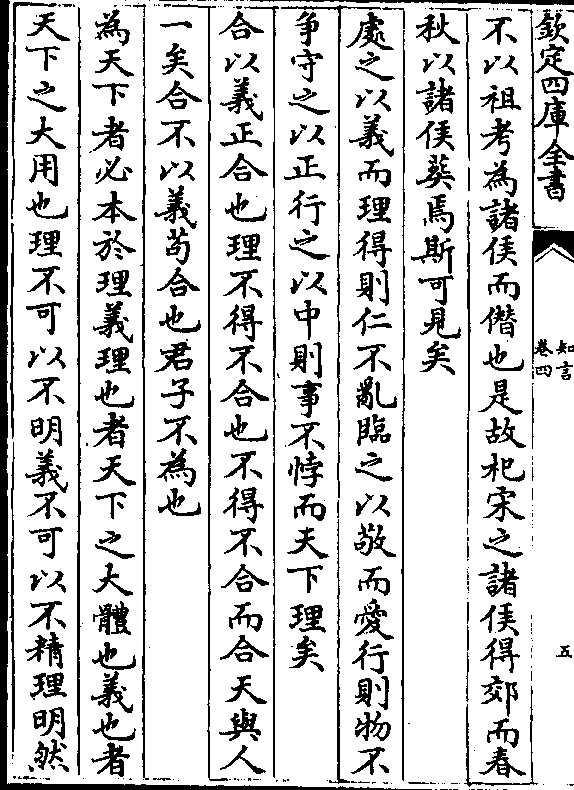 欽定四庫全書
知言
卷四
五
不以祖考為諸侯而僭也是故杞宋之諸侯得郊而春
秋以諸侯葬焉斯可見矣
處之以義而理得則仁不亂臨之以敬而愛行則物不
爭守之以正行之以中則事不悖而天下理矣
合以義正合也理不得不合也不得不合而合天與人
一矣合不以義苟合也君子不為也
為天下者必本於理義理也者天下之大體也義也者
天下之大用也理不可以不明義不可以不精理明然